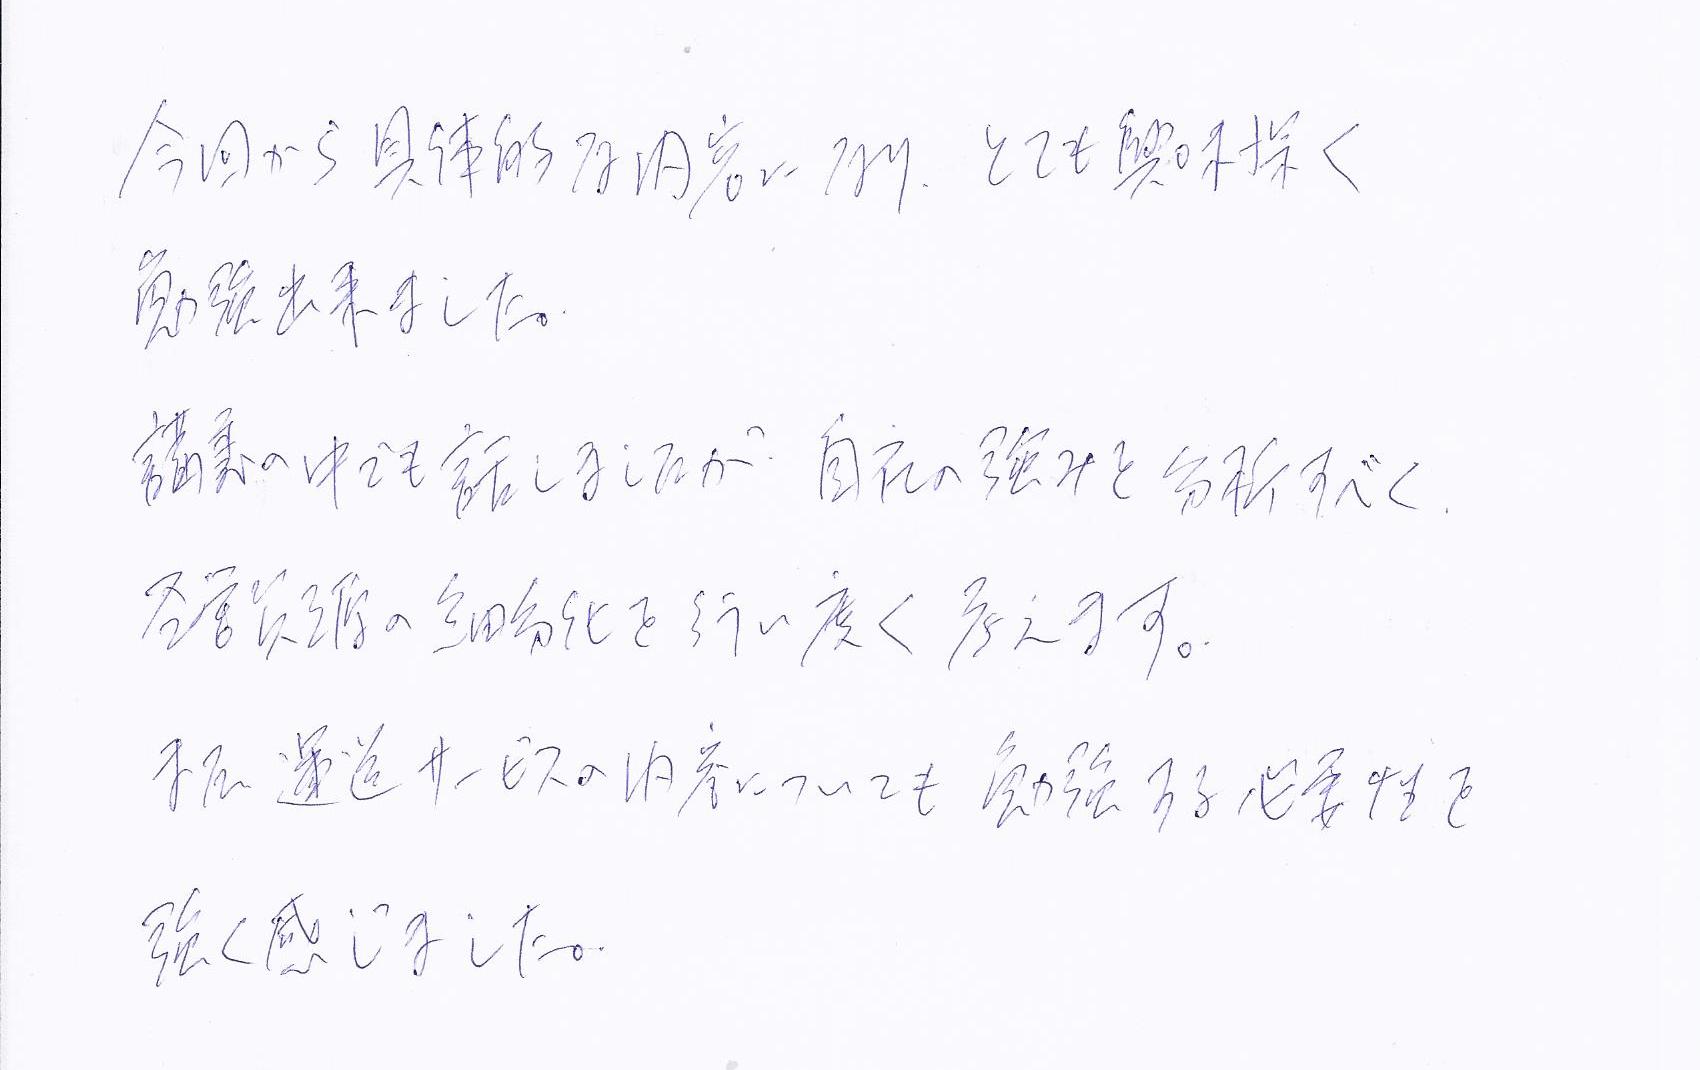 今回から具体的な内容になり、とても興味深く
勉強出来ました。
講義の中でも話しましたが、自社の強みを分析すべく、
経営資源の細分化を行い度く考えます。
また運送サービスの内容についても勉強する必要性を
強く感じました。